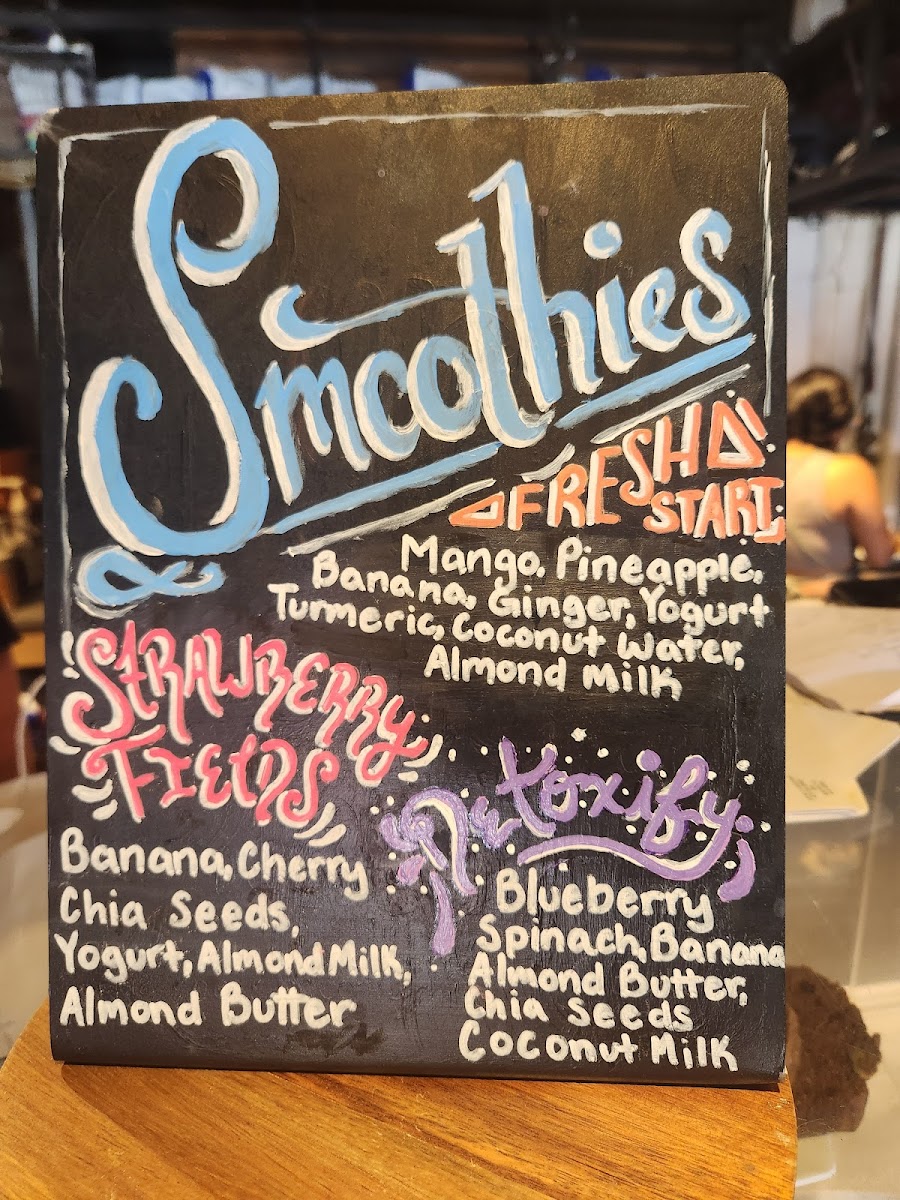 Smoothies
FRESH
START
Mango, Pineapple,
Banana, Ginger, Yogurt
Turmeric, Coconut Water,
Almond Milk
STRAWBERRY
FIELDS
Banana, Cherry
Chia Seeds,
Yogurt, Almond Milk,
Almond Butter
Detoxify
Blueberry
Spinach, Banana
Almond Butter,
Chia Seeds
Coconut Milk